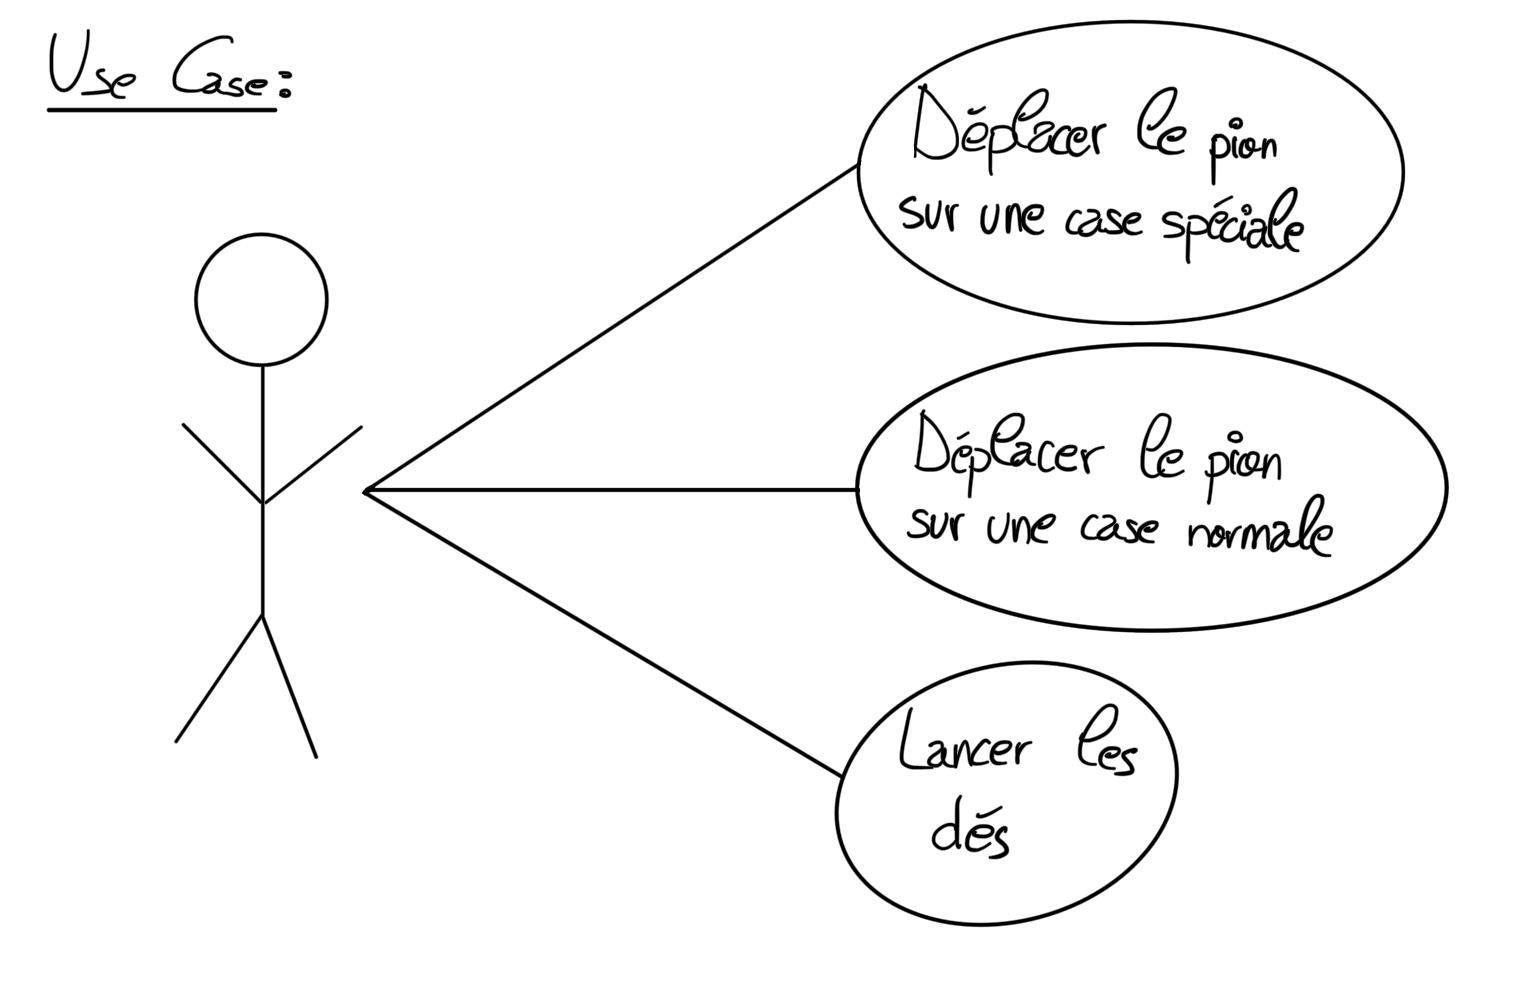 Use Case:
Déplacer le pion
sur une case spéciale
Déplacer le pion
sur une case normale
Lancer les
dés